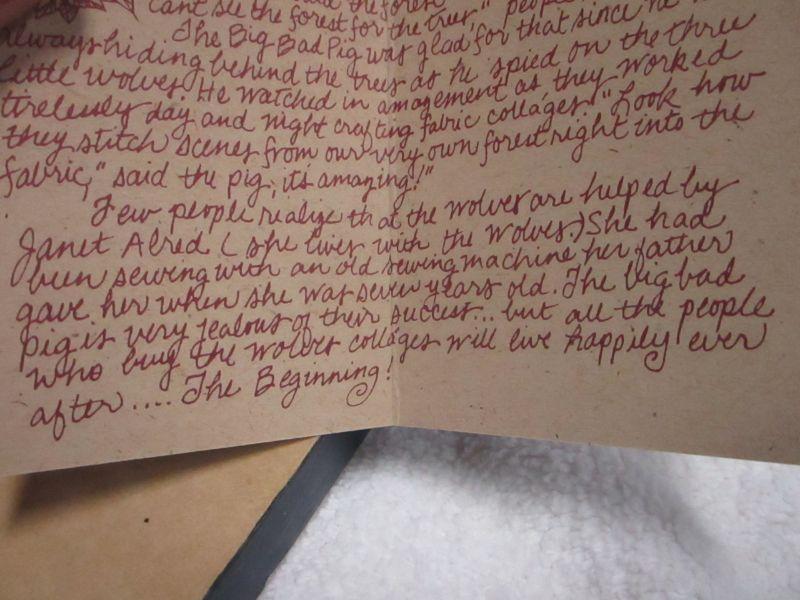 the forest
can't see the forest for the trees," people
The Big Bad Pig was glad for that since he
always hiding behind the trees as he spied on the three
little wolves. He watched in amazement as they worked
tirelessly day and night crafting fabric collages. "Look how
they stitch scenes from our very own forest right into the
fabric," said the pig, "it's amazing!"
Few people realize that the wolves are helped by
Janet Alred (she lives with the wolves.) She had
been sewing with an old sewing machine her father
gave her when she was seven years old. The big bad
pig is very jealous of their success... but all the people
who buy the wolves collages will live happily ever
after .... The Beginning!